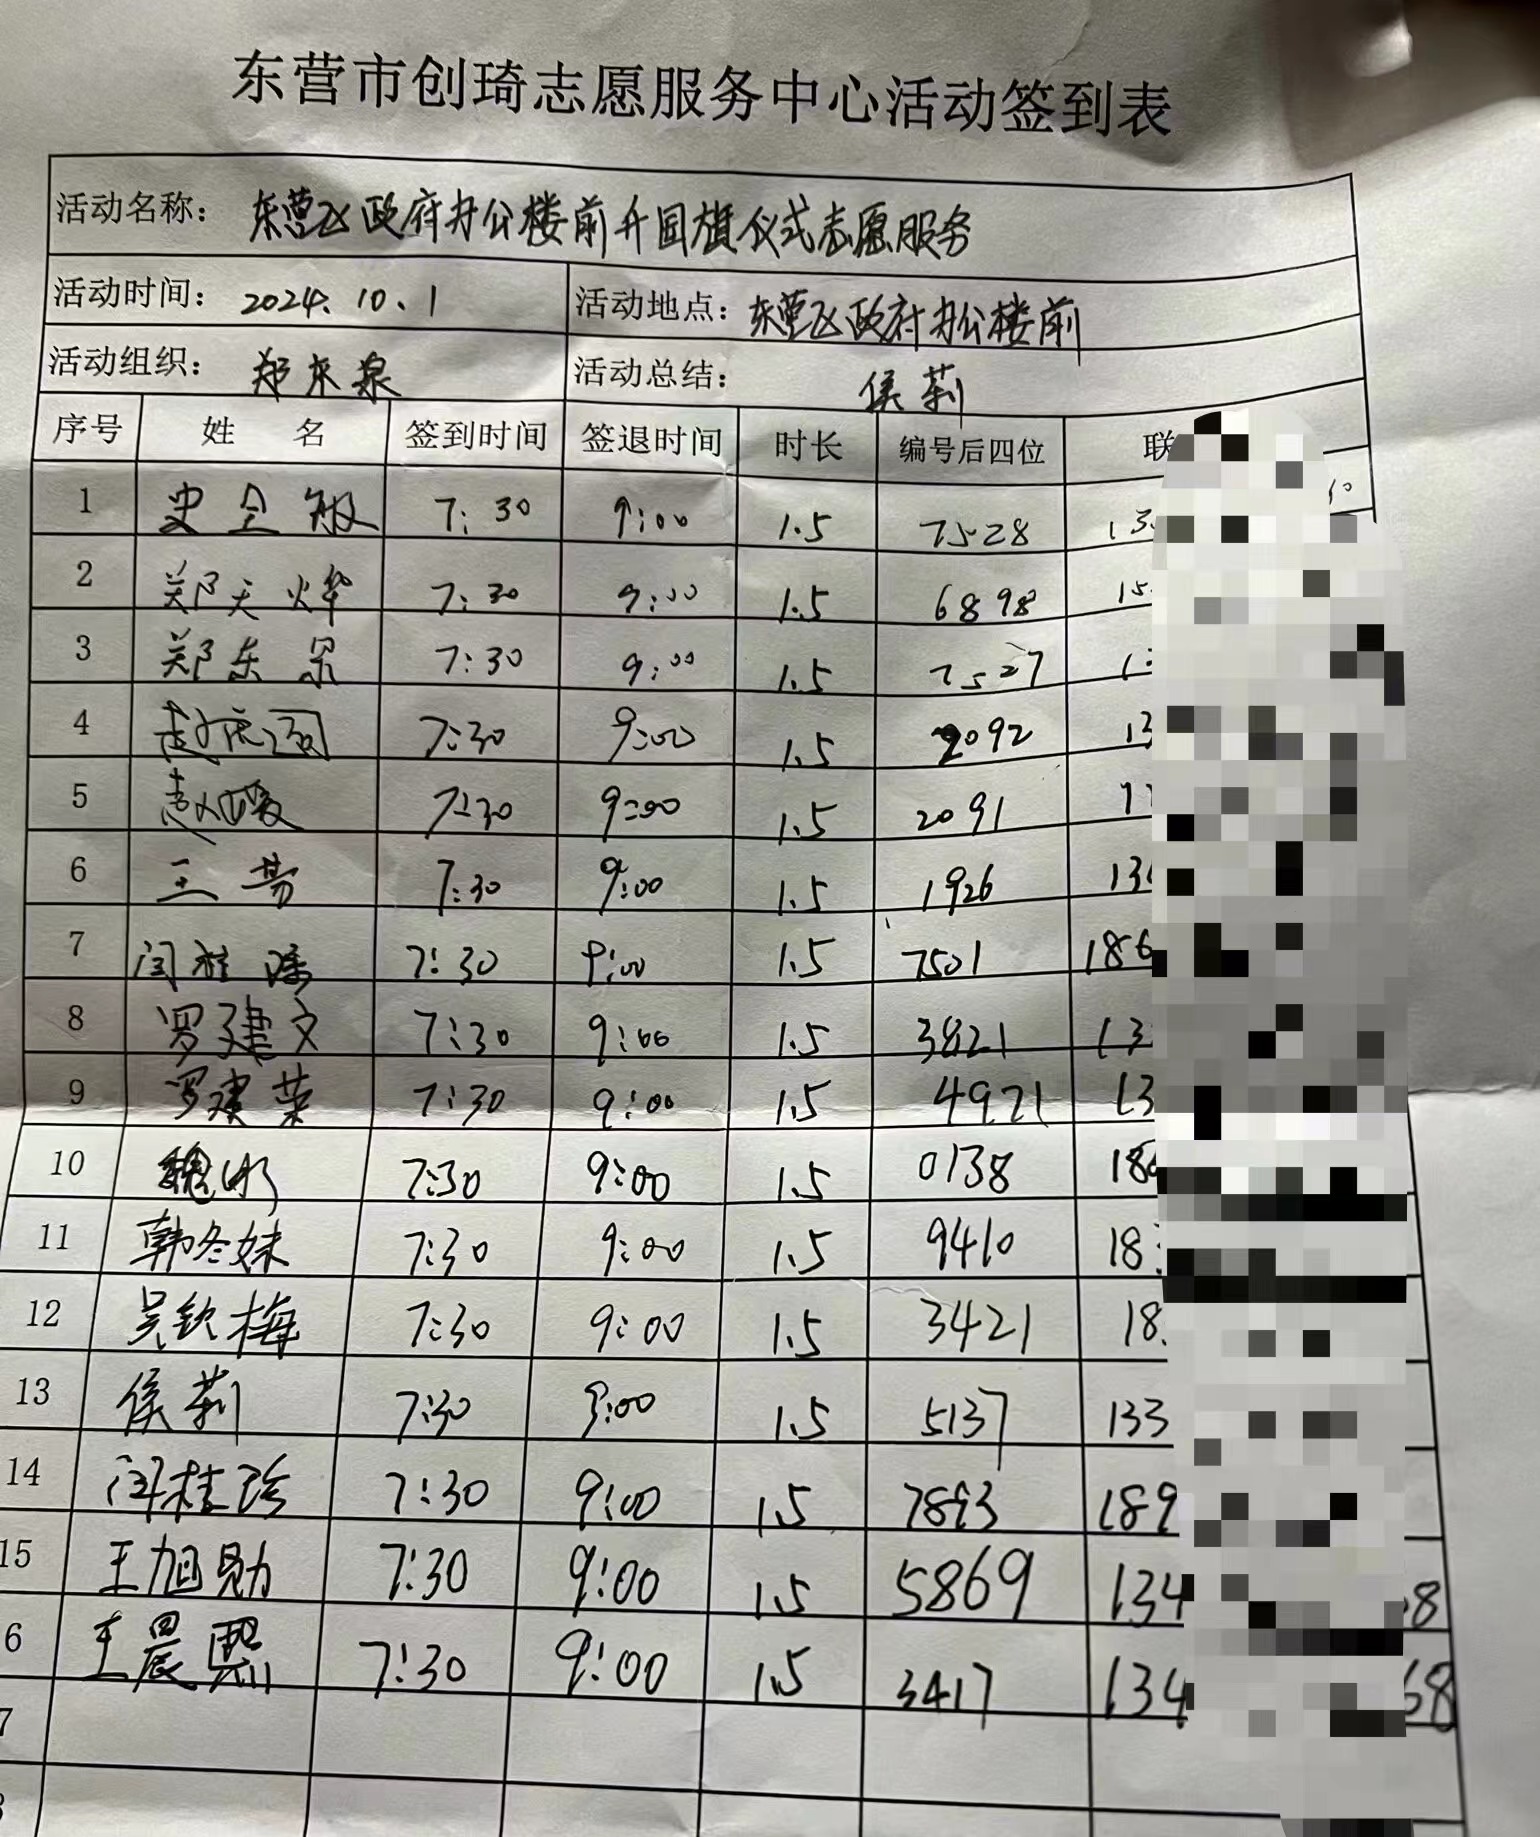 东营市创琦志愿服务中心活动签到表
活动名称： 东营区政府办公楼前升国旗仪式志愿服务
活动时间： 2024.10.1 活动地点： 东营区政府办公楼前
活动组织： 郑东泉 活动总结： 侯莉
序号 姓 名 签到时间 签退时间 时长 编号后四位 联
1 史全敏 7:30 9:00 1.5 7528 13
2 郑天烨 7:30 9:00 1.5 6898 15
3 郑东泉 7:30 9:00 1.5 7527 13
4 7:30 9:00 1.5 2092 13
5 7:30 9:00 1.5 2091
6 王芳 7:30 9:00 1.5 1926 13
7 闫桂 7:30 9:00 1.5 7501 186
8 罗建文 7:30 9:00 1.5 3821 13
9 罗建荣 7:30 9:00 1.5 4921 13
10 7:30 9:00 1.5 0138 186
11 韩冬妹 7:30 9:00 1.5 9410 183
12 吴钦梅 7:30 9:00 1.5 3421 18
13 侯莉 7:30 9:00 1.5 5137 133
14 闫桂珍 7:30 9:00 1.5 7893 189
15 王旭勋 7:30 9:00 1.5 5869 134 8
6 王晨熙 7:30 9:00 1.5 3417 134 68
7